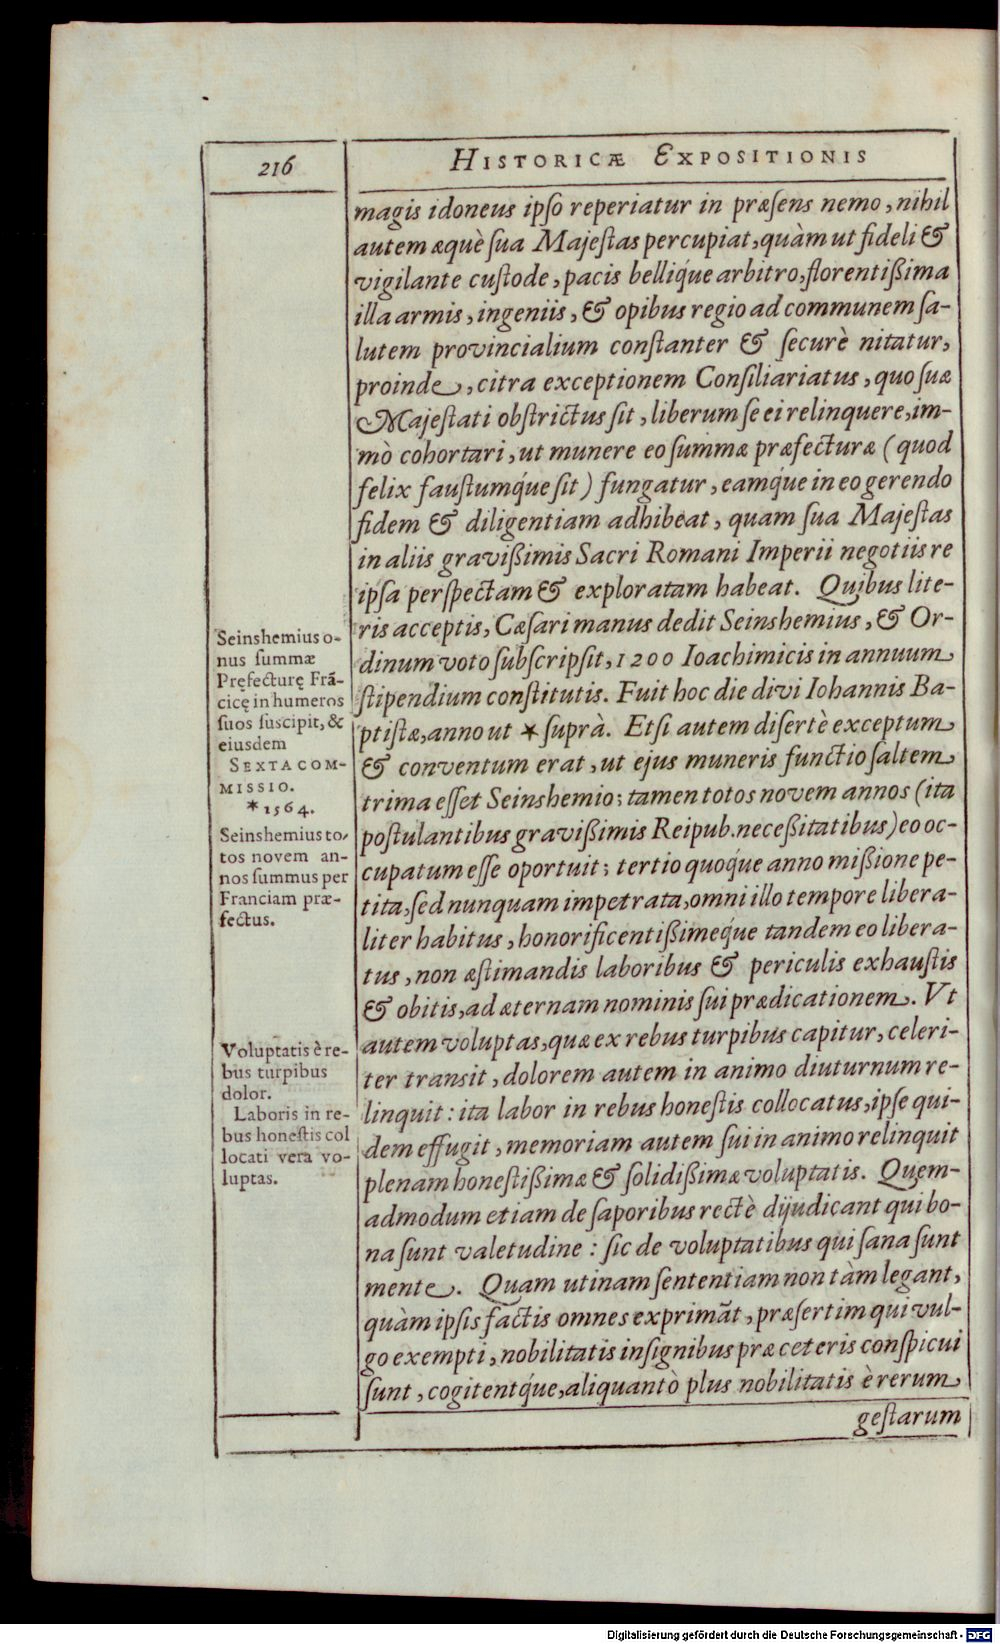 216
HISTORICÆ EXPOSITIONIS
magis idoneus ipſo reperiatur in præſens nemo, nihil
autem æquè ſua Majeſtas percupiat, quàm ut fideli &
vigilante cuſtode, pacis bellique arbitro, florentißima
illa armis, ingeniis, & opibus regio ad communem ſa-
lutem provincialium conſtanter & ſecurè nitatur,
proinde, citra exceptionem Conſiliariatus, quo ſuæ
Majeſtati obſtrictus ſit, liberum ſe ei relinquere, im-
mò cohortari, ut munere eo ſummæ præfecturæ (quod
felix fauſtumq́ue ſit) fungatur, eamq́ue in eo gerendo
fidem & diligentiam adhibeat, quam ſua Majeſtas
in aliis gravißimis Sacri Romani Imperii negotiis re
ipſa perſpectam & exploratam habeat. Quibus lite-
ris acceptis, Cæſari manus dedit Seinshemius, & Or-
dinum voto ſubſcripſit, 1200 Ioachimicis in annuum
ſtipendium conſtitutis. Fuit hoc die divi Iohannis Ba-
ptiſtæ, anno ut * ſuprà. Etſi autem diſertè exceptum
& conventum erat, ut ejus muneris functio ſaltem
trima eſſet Seinshemio; tamen totos novem annos (ita
poſtulantibus gravißimis Reipub. neceßitatibus) eo oc-
cupatum eſſe oportuit; tertio quoq́ue anno mißione pe-
tita, ſed nunquam impetrata, omni illo tempore libera-
liter habitus, honorificentißimeq́ue tandem eo libera-
tus, non æſtimandis laboribus & periculis exhauſtis
& obitis, ad æternam nominis ſui prædicationem. Vt
autem voluptas, quæ ex rebus turpibus capitur, celeri-
ter transit, dolorem autem in animo diuturnum re-
linquit: ita labor in rebus honeſtis collocatus, ipſe qui-
dem effugit, memoriam autem ſui in animo relinquit
plenam honeſtißimæ & ſolidißimæ voluptatis. Quem-
admodum etiam de ſaporibus rectè dijudicant qui bo-
na ſunt valetudine: ſic de voluptatibus qui ſana ſunt
mente. Quam utinam ſententiam non tàm legant,
quàm ipſis factis omnes exprimãt, præſertim qui vul-
go exempti, nobilitatis inſignibus præ ceteris conſpicui
ſunt, cogitentq́ue, aliquantò plus nobilitatis è rerum
geſtarum
Seinshemius o-
nus ſummæ
Pręfecturę Frã-
cicę in humeros
ſuos ſuscipit, &
eiusdem
SEXTA COM-
MISSIO.
* 1564.
Seinshemius to-
tos novem an-
nos ſummus per
Franciam præ-
fectus.
Voluptatis è re-
bus turpibus
dolor.
Laboris in re-
bus honeſtis col
locati vera vo-
luptas.
Digitalisierung gefördert durch die Deutsche Forschungsgemeinschaft - DFG